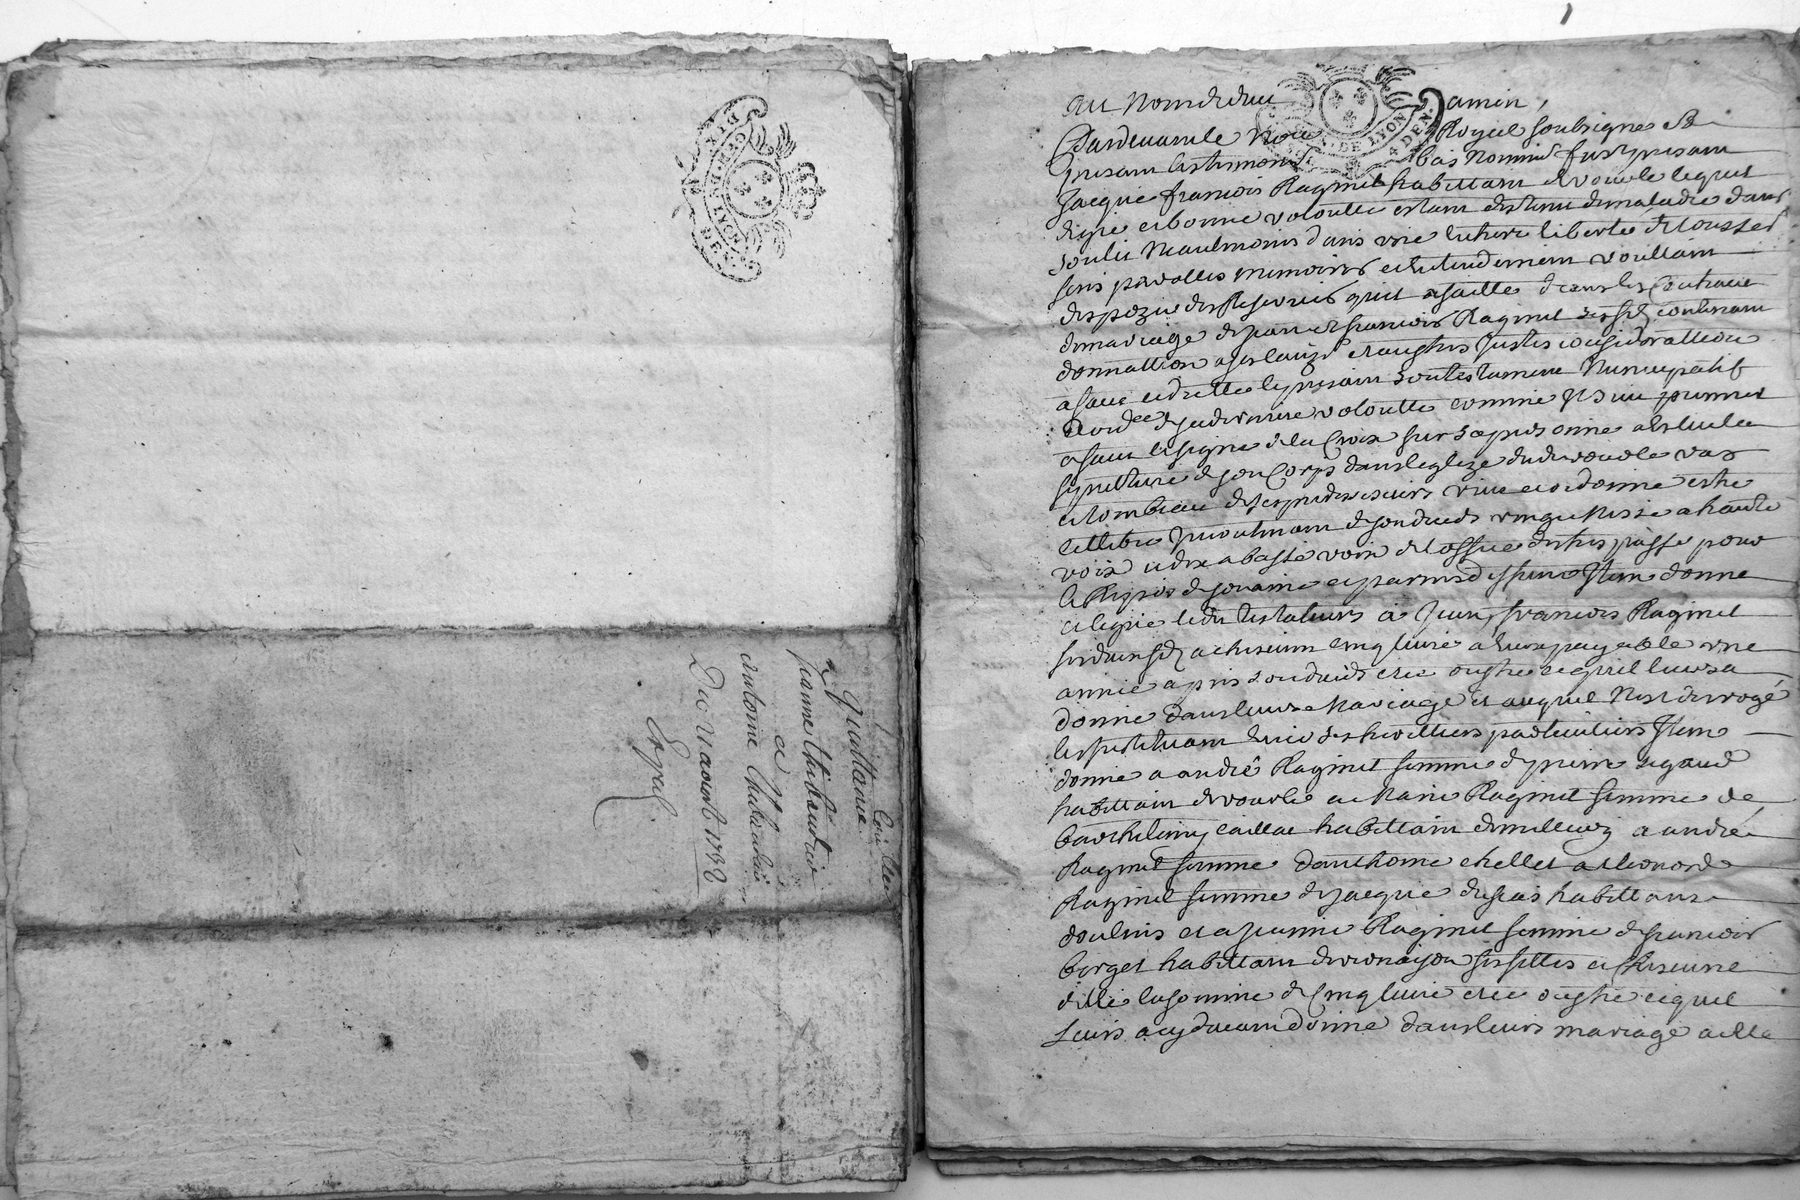 GEN. D. LYON
DIX DEN.
Quittance
Jeanne thibaudier
a
antoine thibaudier
Du 11 aoust 1738
Expé
GEN. DE LYON
4 DEN.
au Nom de dieu amen,
Pardevant le No Royal soubsigne &
presant les tesmoins bas Nommés fust presant
Jacque françois Raginel habittant de vourle lequel
de gre et bonne volontte estant destenu de maladie dans
son lit Neaulmoins dans une entiere liberté de tousses
sens parolles memoires et entendement voullant
dispozer des Reserves quil a faittes dans les Contract
de mariage de jean et françois Raginel ses fils contenant
donnattion a ses laisné et austres justes considerations
a faict et dicte le presant son testament Nuncupatif
et ordce de sa derniere volontte comme s'ensuit premier
a faict le signe de la Croix sur sa personne a esleu la
sepulture de son Corps dans leglize dudit vourle vas
et tombeau de ses predecesseurs veut et ordonne estre
cellebre jncontinant de son deceds vingt Messe a haulte
voix et dix a basse voix de loffice des trespasse pour
le Repos de son ame et parens deffunct Jtem donne
et legue ledit testateurs a Jean, francois Raginel
ses deux fils a chascun cinq livre a leurs payable une
annee apres son deceds et ce oustre ce quil leurs a
donne dans leurs Mariage et auquel Nest desrogé
les jnstituant en ce ses heritiers particuliers Jtem
donne a andré Raginel femme de pierre
habittant de vourle a Marie Raginel femme de
barthelemy caillat habittant de millery a andrée
Raginel femme danthoine chellet a leonord
Raginel femme de jacque habittans
doulins et a jeanne Raginel femme de francois
borget habittant de vernaison ses filles a chascune
delle la somme de cinq livre et ce oustre ce quil
leurs a cy devant donne dans leurs mariage a elle